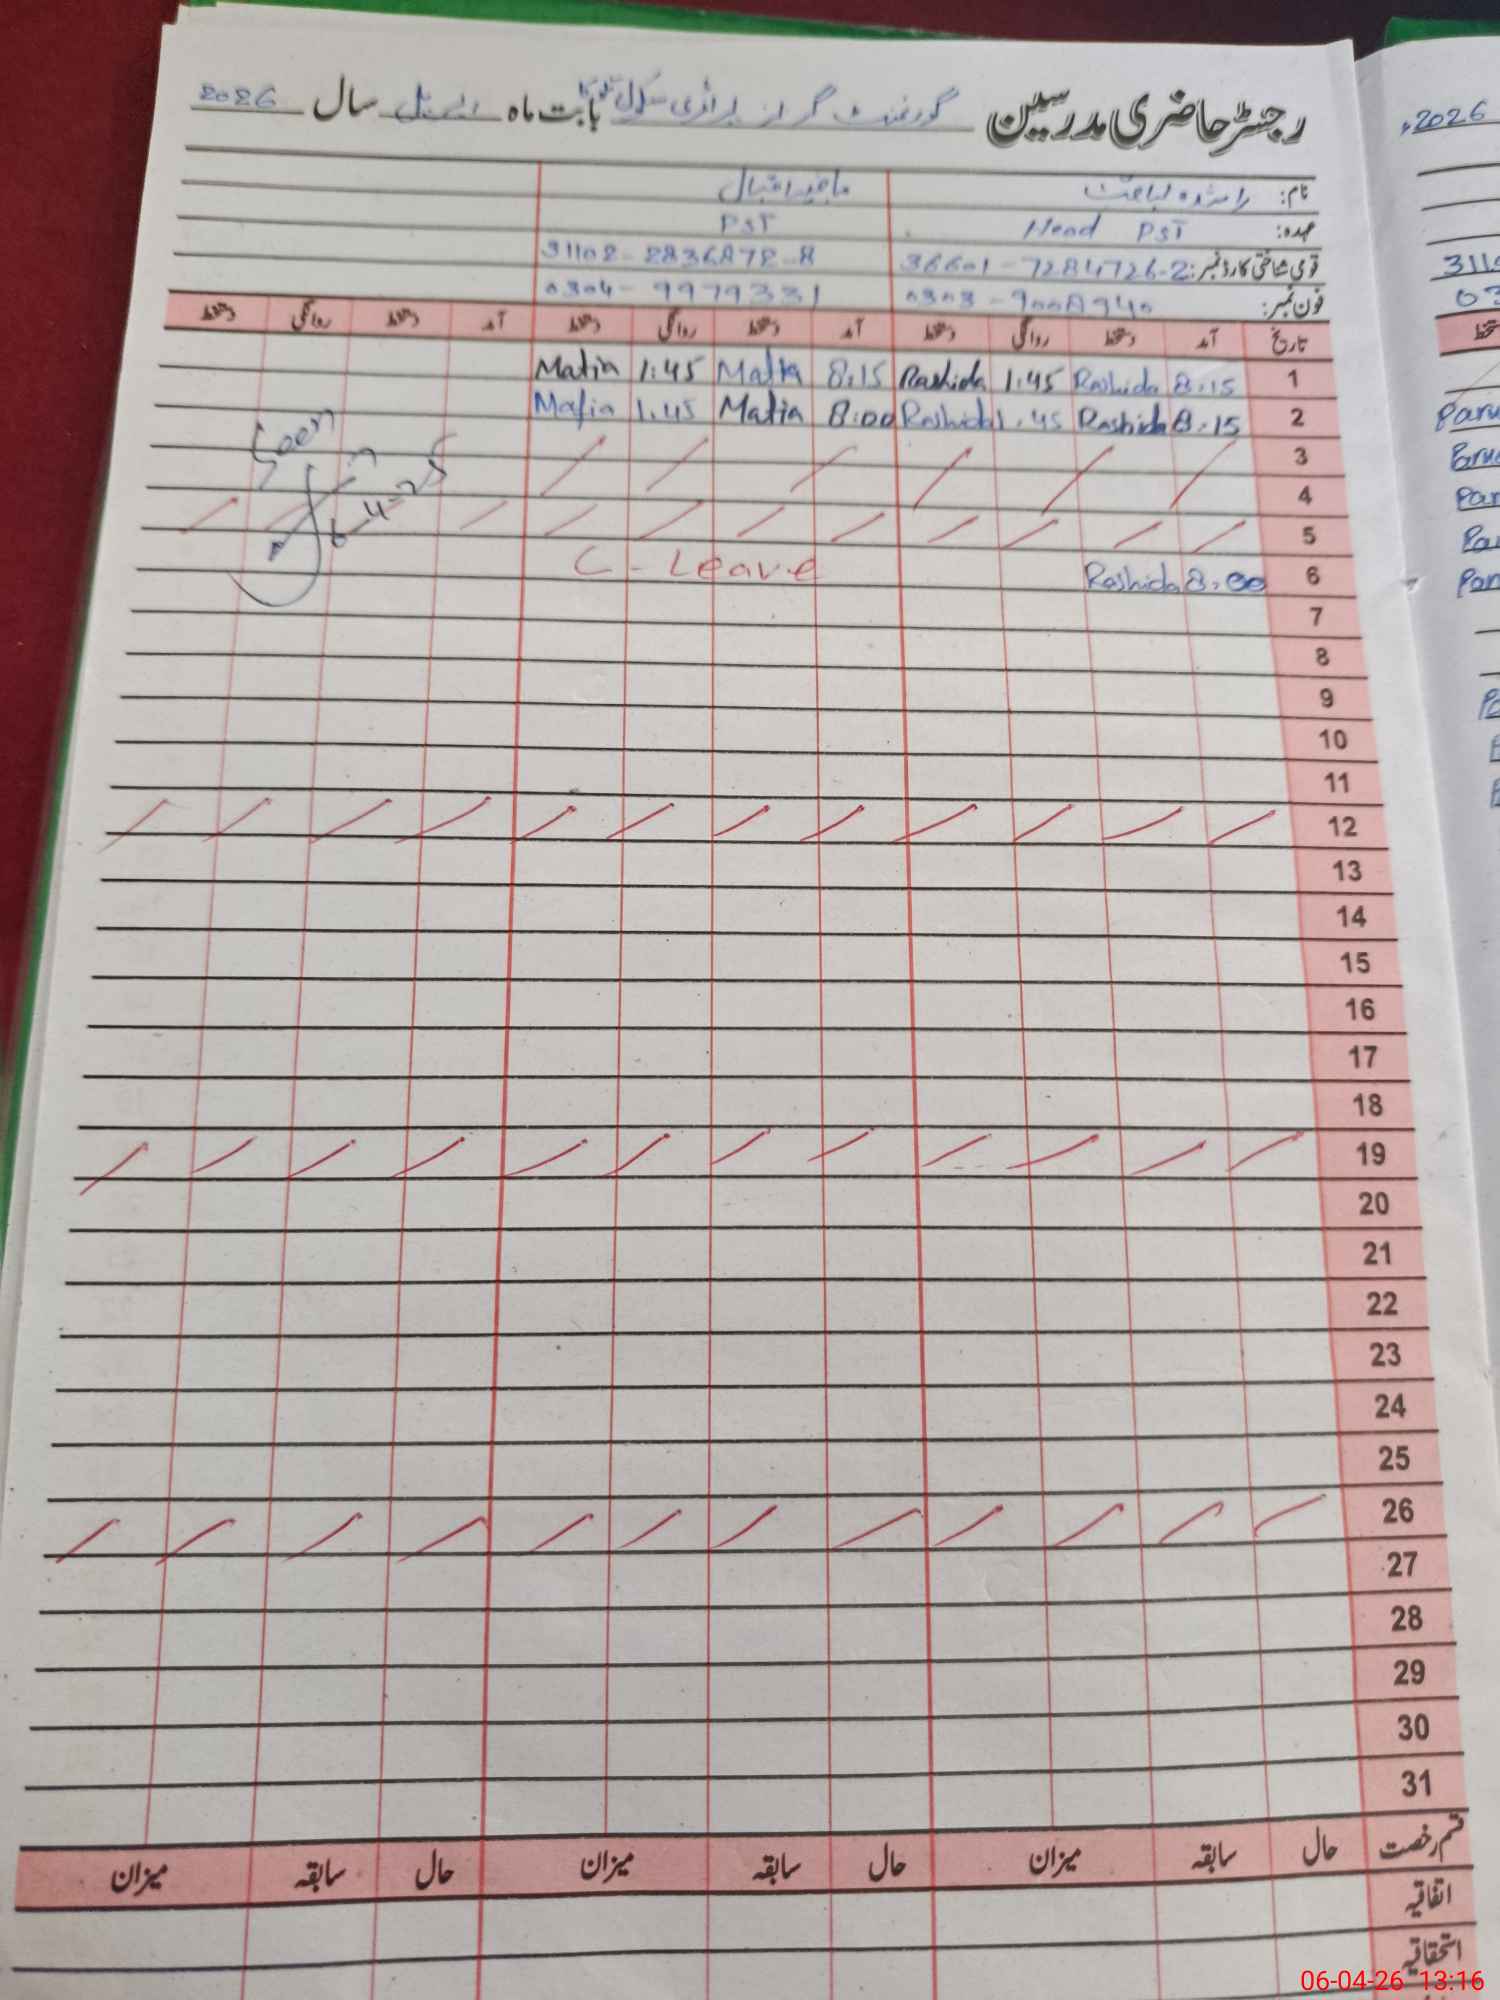 رجسٹر حاضری مدرسین گورنمنٹ گرلز پرائمری سکول بابت ماہ اپریل سال 2026
نام: راشدہ
عہدہ: Head PST PST
قومی شناختی کارڈ نمبر: 36601-7284726-2 31102-2836872-8
فون نمبر: 0303-9008940 0304-9979331
تاریخ آمد دستخط روانگی دستخط آمد دستخط روانگی دستخط آمد دستخط روانگی دستخط
1 8:15 Rashida 1:45 Rashida 8:15 Matia 1:45 Matia
2 8:15 Rashida 1:45 Rashida 8:00 Matia 1:45 Matia
3
Seen
4
5
6 8:00 Rashida C-Leave
7
8
9
10
11
12
13
14
15
16
17
18
19
20
21
22
23
24
25
26
27
28
29
30
31
قسم رخصت حال سابقہ میزان حال سابقہ میزان حال سابقہ میزان
اتفاقیہ
استحقاقیہ
2026
06-04-26 13:16